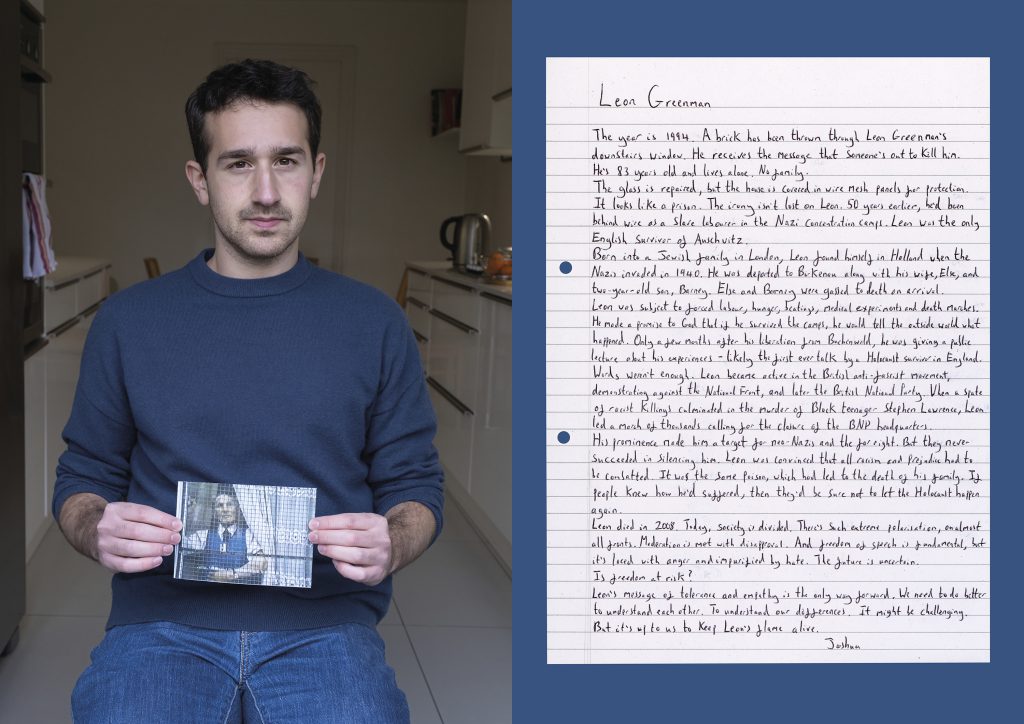 Leon Greenman
The year is 1994. A brick has been thrown through Leon Greenman's
downstairs window. He receives the message that someone's out to kill him.
He's 83 years old and lives alone. No family.
The glass is repaired, but the house is covered in wire mesh panels for protection.
It looks like a prison. The irony isn't lost on Leon. 50 years earlier, he'd been
behind wire as a slave labourer in the Nazi concentration camps. Leon was the only
English survivor of Auschwitz.
Born into a Jewish family in London, Leon found himself in Holland when the
Nazis invaded in 1940. He was deported to Birkenau along with his wife, Else, and
two-year-old son, Barney. Else and Barney were gassed to death on arrival.
Leon was subject to forced labour, hunger, beatings, medical experiments and death marches.
He made a promise to God that if he survived the camps, he would tell the outside world what
happened. Only a few months after his liberation from Buchenwald, he was giving a public
lecture about his experiences - likely the first ever talk by a Holocaust survivor in England.
Words weren't enough. Leon became active in the British anti-fascist movement,
demonstrating against the National Front, and later the British National Party. When a spate
of racist killings culminated in the murder of Black teenager Stephen Lawrence, Leon
led a march of thousands calling for the closure of the BNP headquarters.
His prominence made him a target for neo-Nazis and the far right. But they never
succeeded in silencing him. Leon was convinced that all racism and prejudice had to
be combatted. It was the same poison, which had led to the death of his family. If
people knew how he'd suffered, then they'd be sure not to let the Holocaust happen
again.
Leon died in 2008. Today, society is divided. There's such extreme polarisation, on almost
all fronts. Moderation is met with disapproval. And freedom of speech is fundamental, but
it's laced with anger and impurified by hate. The future is uncertain.
Is freedom at risk?
Leon's message of tolerance and empathy is the only way forward. We need to do better
to understand each other. To understand our differences. It might be challenging.
But it's up to us to keep Leon's flame alive.
Joshua